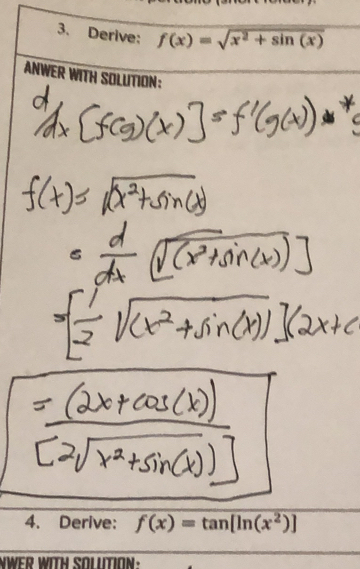 3. Derive: f(x) = √x² + sin (x)
ANWER WITH SOLUTION:
d/dx [f(g)(x)] = f'(g(x)) * *g
f(x) = √x²+sin(x)
= d/dx [√(x²+sin(x))]
= [1/2 √(x²+sin(x))](2x+c
= (2x+cos(x))
[2√x²+sin(x))]
4. Derive: f(x) = tan[ln(x²)]
NWER WITH SOLUTION: